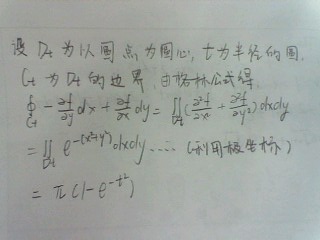 设 Dt 为以圆点为圆心, t为半径的圆.
Ct 为 Dt 的边界, 由格林公式得
∮Ct -∂f/∂y dx + ∂f/∂x dy = ∬Dt (∂²f/∂x² + ∂²f/∂y²) dxdy
= ∬Dt e^{-(x²+y²)} dxdy ..... (利用极坐标)
= π(1-e^{-t²})